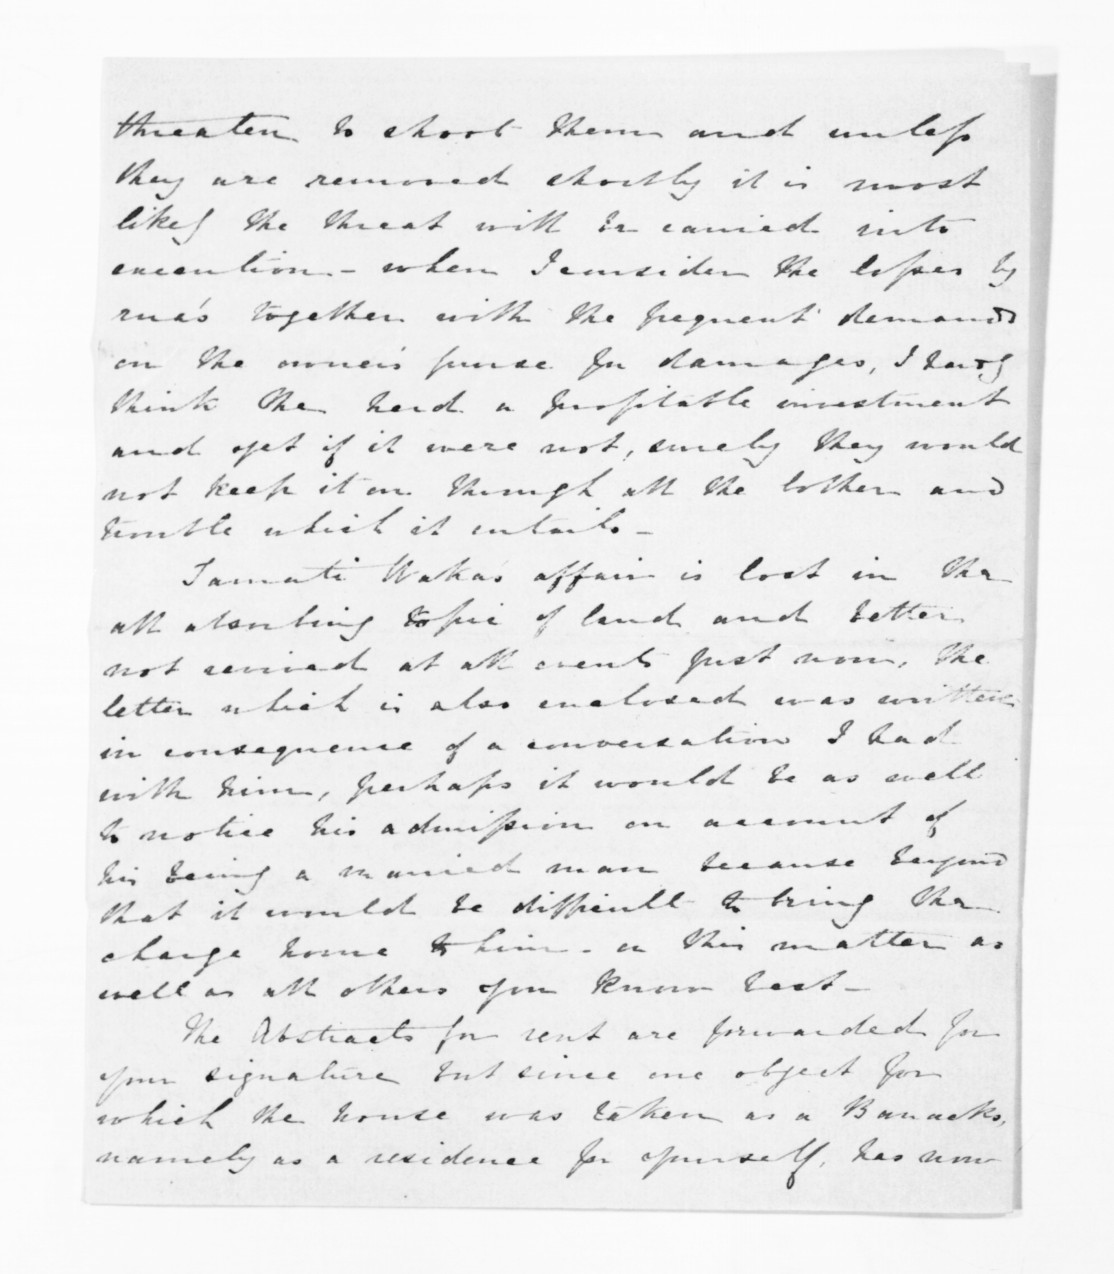 threaten to shoot them and unless
they are removed shortly it is most
likely the threat will be carried into
execution - when I consider the losses by
rua's together with the frequent demands
on the owner's purse for damages, I hardly
think the herd a profitable investment
and yet if it were not, surely they would
not keep it on through all the bother and
trouble which it entails -
Tamati Waka's affair is lost in the
all absorbing topic of land and better
not revived at all events just now, the
letter which is also enclosed was written
in consequence of a conversation I had
with him, perhaps it would be as well
to notice his admission on account of
his being a married man because beyond
that it would be difficult to bring the
charge home to him - in this matter as
well as all others you know best -
The Abstracts for rent are forwarded for
your signature but since one object for
which the house was taken as a Barracks,
namely as a residence for yourself, has now